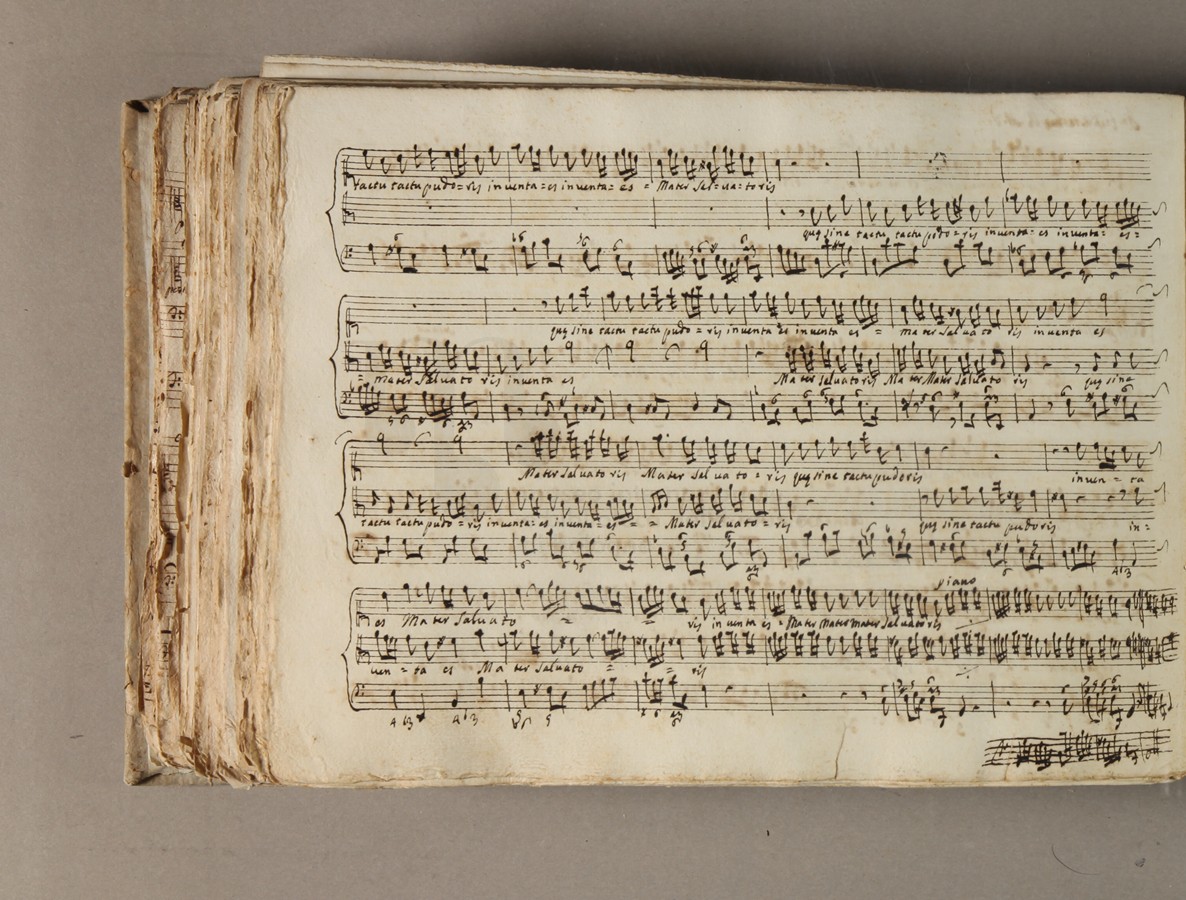 tactu tactu pudo = ris inventa = es inventa = es = Mater Salvatoris
quę sine tactu tactu pudo = ris inventa = es inventa = es =
quę sine tactu tactu pudo = ris inventa es inventa es = mater Salvato ris inventa es
= mater Salvato ris inventa es Mater Salvatoris Mater Mater Salvato ris quę sine
Mater Salvato ris Mater Salvato = ris quę sine tactu pudoris inven = ta
tactu tactu pudo = ris inventa = es inventa = es = = Mater Salvato = ris quę sine tactu pudoris in =
piano
es Mater Salvato = = ris inventa es = Mater Mater mater Salvatoris
ven = ta es Ma ter Salvato = = ris